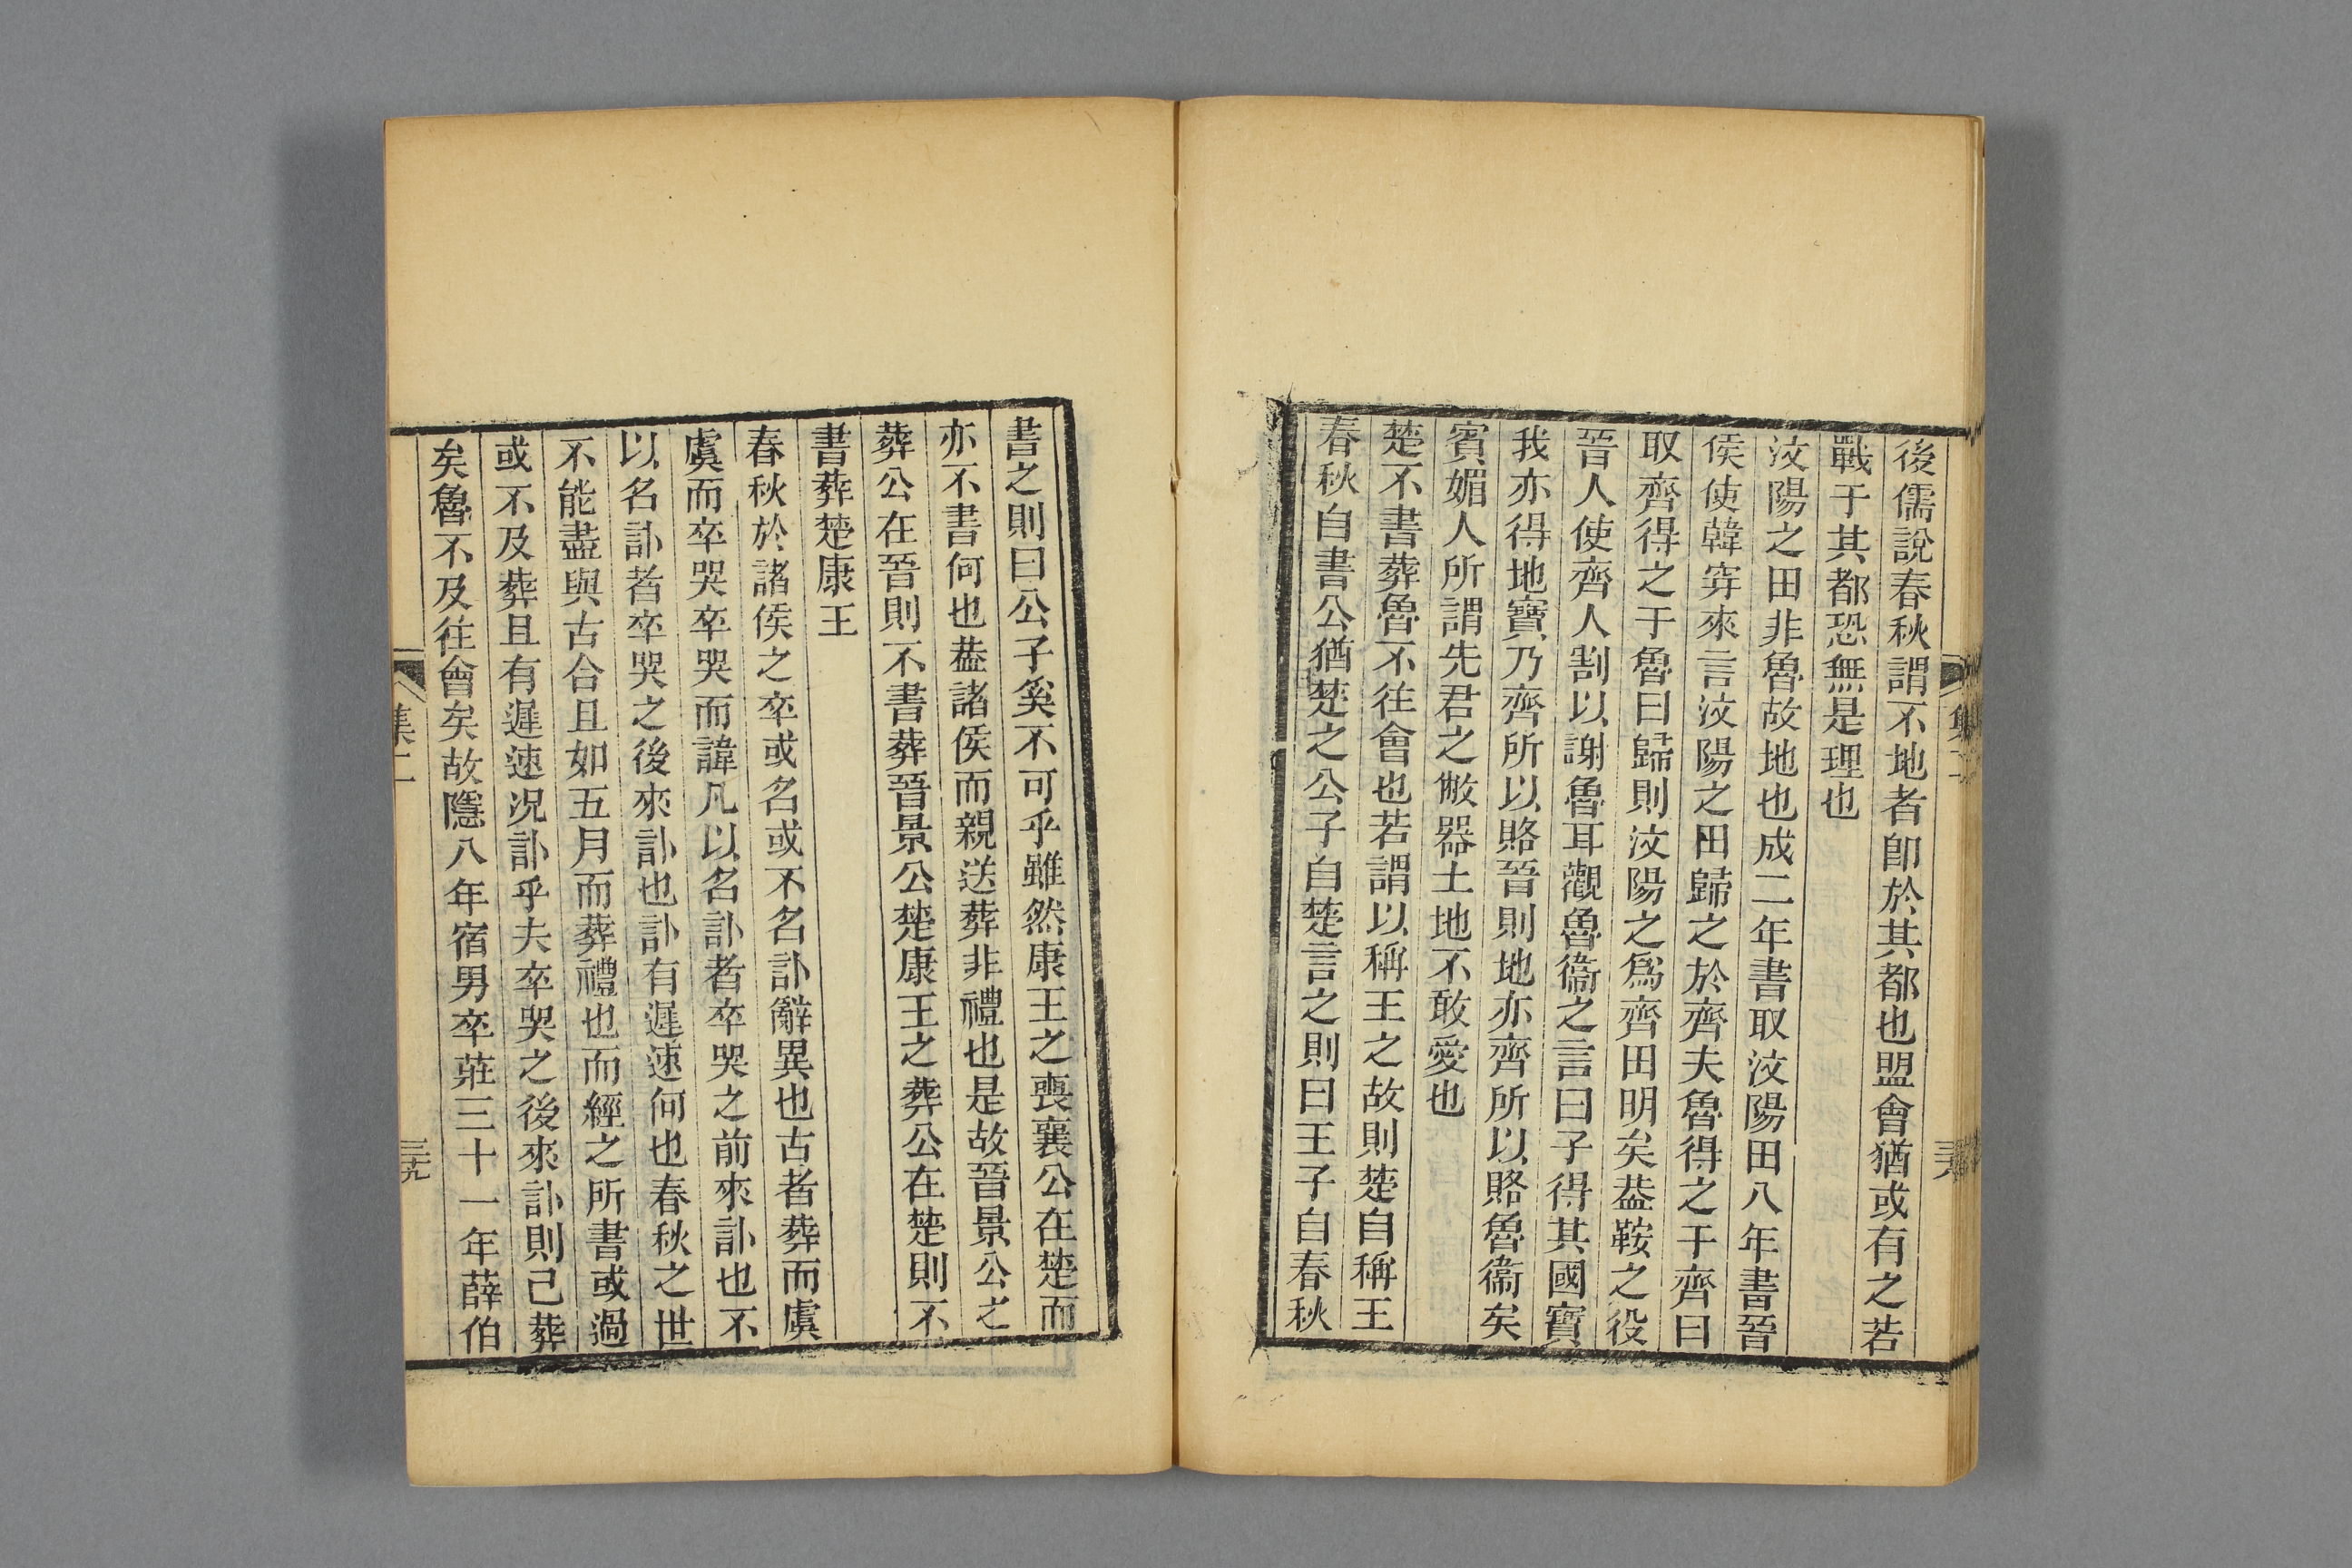 後儒說春秋謂不地者卽於其都也盟會猶或有之若
戰于其都恐無是理也
汶陽之田非魯故地也成二年書取汶陽田八年書晉
侯使韓穿來言汶陽之田歸之於齊夫魯得之于齊曰
取齊得之于魯曰歸則汶陽之爲齊田明矣葢鞍之役
晉人使齊人割以謝魯耳觀魯衞之言曰子得其國寶
我亦得地寶乃齊所以賂晉則地亦齊所以賂魯衞矣
賓媚人所謂先君之敝器土地不敢愛也
楚不書葬魯不往會也若謂以稱王之故則楚自稱王
春秋自書公猶楚之公子自楚言之則曰王子自春秋
書之則曰公子奚不可乎雖然康王之喪襄公在楚而
亦不書何也葢諸侯而親送葬非禮也是故晉景公之
葬公在晉則不書葬晉景公楚康王之葬公在楚則不
書葬楚康王
春秋於諸侯之卒或名或不名訃辭異也古者葬而虞
虞而卒哭卒哭而諱凡以名訃者卒哭之前來訃也不
以名訃者卒哭之後來訃也訃有遲速何也春秋之世
不能盡與古合且如五月而葬禮也而經之所書或過
或不及葬且有遲速况訃乎夫卒哭之後來訃則己葬
矣魯不及往會矣故隱八年宿男卒莊三十一年薛伯
集二
三十九